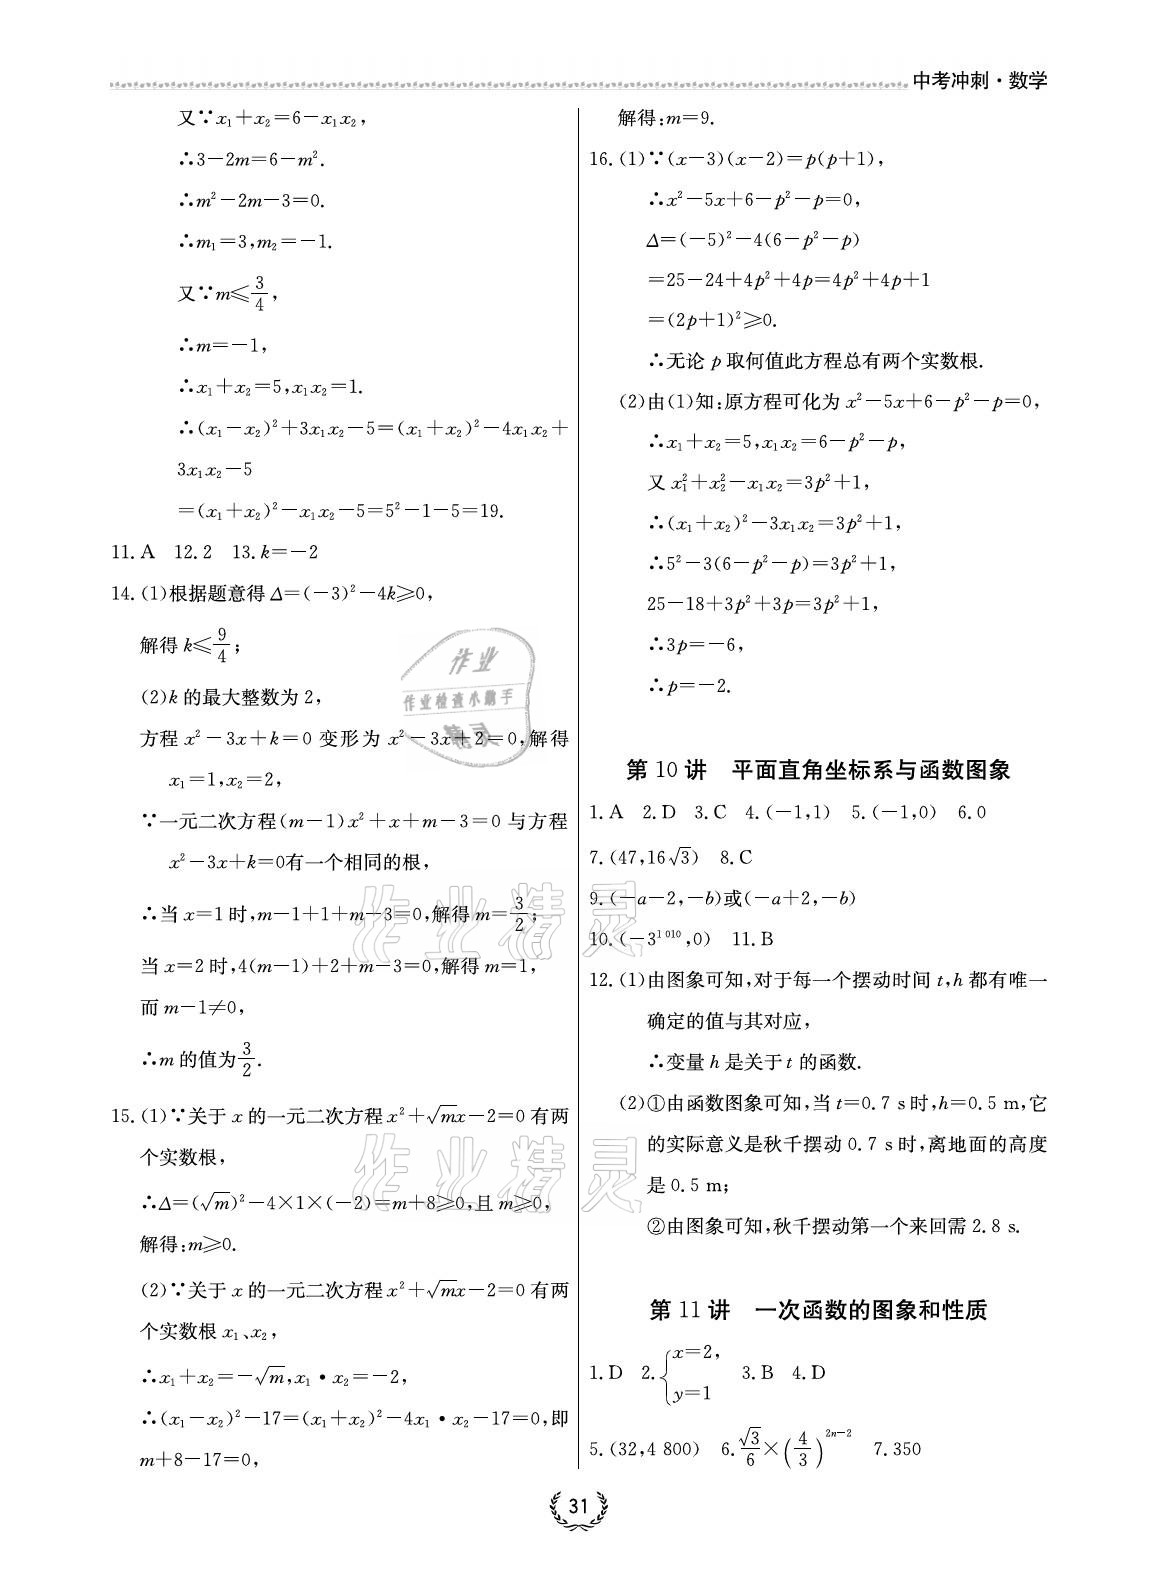 中考冲刺·数学
又∵x₁+x₂=6-x₁x₂,
∴3-2m=6-m².
∴m²-2m-3=0.
∴m₁=3,m₂=-1.
又∵m≤3/4,
∴m=-1,
∴x₁+x₂=5,x₁x₂=1.
∴(x₁-x₂)²+3x₁x₂-5=(x₁+x₂)²-4x₁x₂+
3x₁x₂-5
=(x₁+x₂)²-x₁x₂-5=5²-1-5=19.
11. A 12. 2 13. k=-2
14. (1)根据题意得 Δ=(-3)²-4k≥0,
解得 k≤9/4;
(2)k 的最大整数为 2,
方程 x²-3x+k=0 变形为 x²-3x+2=0,解得
x₁=1,x₂=2,
∵一元二次方程(m-1)x²+x+m-3=0 与方程
x²-3x+k=0有一个相同的根,
∴当 x=1 时,m-1+1+m-3=0,解得 m=3/2;
当 x=2 时,4(m-1)+2+m-3=0,解得 m=1,
而 m-1≠0,
∴m 的值为3/2.
15. (1)∵关于 x 的一元二次方程 x²+√mx-2=0 有两
个实数根,
∴Δ=(√m)²-4×1×(-2)=m+8≥0,且 m≥0,
解得:m≥0.
(2)∵关于 x 的一元二次方程 x²+√mx-2=0 有两
个实数根 x₁、x₂,
∴x₁+x₂=-√m,x₁·x₂=-2,
∴(x₁-x₂)²-17=(x₁+x₂)²-4x₁·x₂-17=0,即
m+8-17=0,
解得:m=9.
16. (1)∵(x-3)(x-2)=p(p+1),
∴x²-5x+6-p²-p=0,
Δ=(-5)²-4(6-p²-p)
=25-24+4p²+4p=4p²+4p+1
=(2p+1)²≥0.
∴无论 p 取何值此方程总有两个实数根.
(2)由(1)知:原方程可化为 x²-5x+6-p²-p=0,
∴x₁+x₂=5,x₁x₂=6-p²-p,
又 x₁²+x₂²-x₁x₂=3p²+1,
∴(x₁+x₂)²-3x₁x₂=3p²+1,
∴5²-3(6-p²-p)=3p²+1,
25-18+3p²+3p=3p²+1,
∴3p=-6,
∴p=-2.
第 10 讲 平面直角坐标系与函数图象
1. A 2. D 3. C 4. (-1,1) 5. (-1,0) 6. 0
7. (47,16√3) 8. C
9. (-a-2,-b)或(-a+2,-b)
10. (-3¹ ⁰¹⁰,0) 11. B
12. (1)由图象可知,对于每一个摆动时间 t,h 都有唯一
确定的值与其对应,
∴变量 h 是关于 t 的函数.
(2)①由函数图象可知,当 t=0.7 s时,h=0.5 m,它
的实际意义是秋千摆动 0.7 s 时,离地面的高度
是 0.5 m;
②由图象可知,秋千摆动第一个来回需 2.8 s.
第 11 讲 一次函数的图象和性质
1. D 2. {x=2, y=1 3. B 4. D
5. (32,4 800) 6. √3/6×(4/3)²ⁿ⁻² 7. 350
31
作业
作业检查小助手
作业精灵
作业精灵